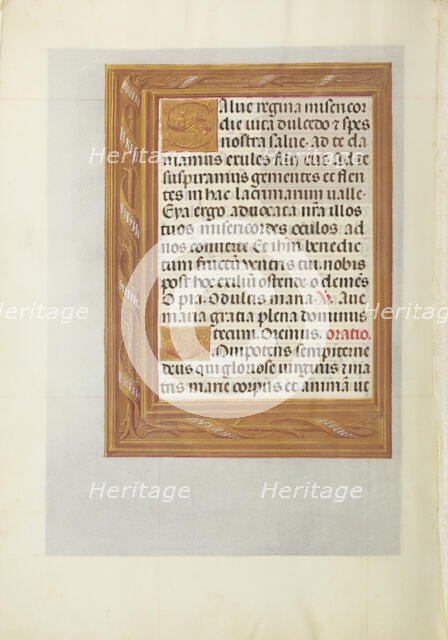 Salue regina misericor
die uita dulcedo & spes
nostra salue. ad te cla
mamus exules filij eue. ad te
suspiramus gementes et flen
tes in hac lacrimarum ualle.
Eya ergo aduocata nr̃a illos
tuos misericordes oculos ad
nos conuerte Et ihm̃ benedic
tum fructum ventris tui, nobis
post hoc exilium ostende. o clemẽs
O pia. O dulcis maria. ℣. Aue
maria gratia plena dominus
tecum. Oremus. Oratio.
Omnipotens sempiterne
deus qui gloriose uirginis & ma
tris marie corpus et animam ut
Heritage Heritage Heritage
Heritage Heritage Heritage
Heritage Heritage Heritage